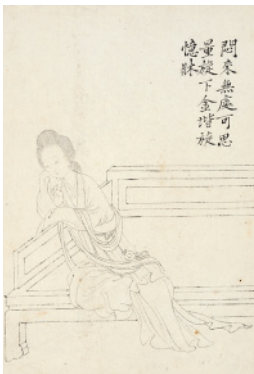 悶來無處可思
量旋下金堦旋
憶牀